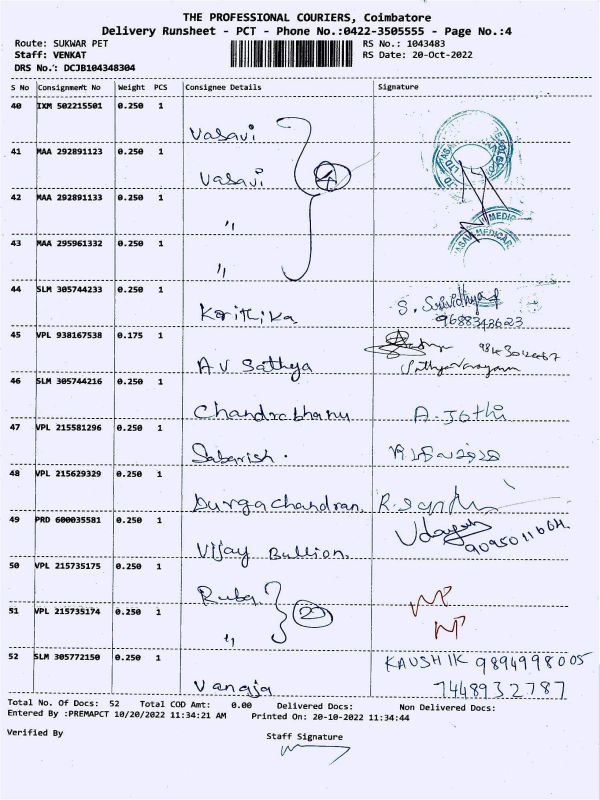 THE PROFESSIONAL COURIERS, Coimbatore
Delivery Runsheet - PCT - Phone No.:0422-3505555 - Page No.:4
Route: SUKWAR PET RS No.: 1043483
Staff: VENKAT RS Date: 20-Oct-2022
DRS No.: DCJB104348304
S No Consignment No Weight PCS Consignee Details Signature
40 IXM 502215501 0.250 1
Vasavi
41 MAA 292891123 0.250 1
Vasavi 4
42 MAA 292891133 0.250 1
"
MEDIC
43 MAA 295961332 0.250 1
"
44 SLM 305744233 0.250 1
Korithika S. Srividhya
9688348623
45 VPL 938167538 0.175 1
AV Sathya Sathyanarayanan
46 SLM 305744216 0.250 1
Chandrabhanu A. Jothi
47 VPL 215581296 0.250 1
Sabarish.
48 VPL 215629329 0.250 1
Durgachandran.
49 PRD 600035581 0.250 1
Vijay Bullion.
50 VPL 215735175 0.250 1
Ruba 2
51 VPL 215735174 0.250 1
"
52 SLM 305772150 0.250 1
KAUSHIK 9894998005
Vanaja 7448932787
Total No. Of Docs: 52 Total COD Amt: 0.00 Delivered Docs: Non Delivered Docs:
Entered By :PREMAPCT 10/20/2022 11:34:21 AM Printed On: 20-10-2022 11:34:44
Verified By Staff Signature